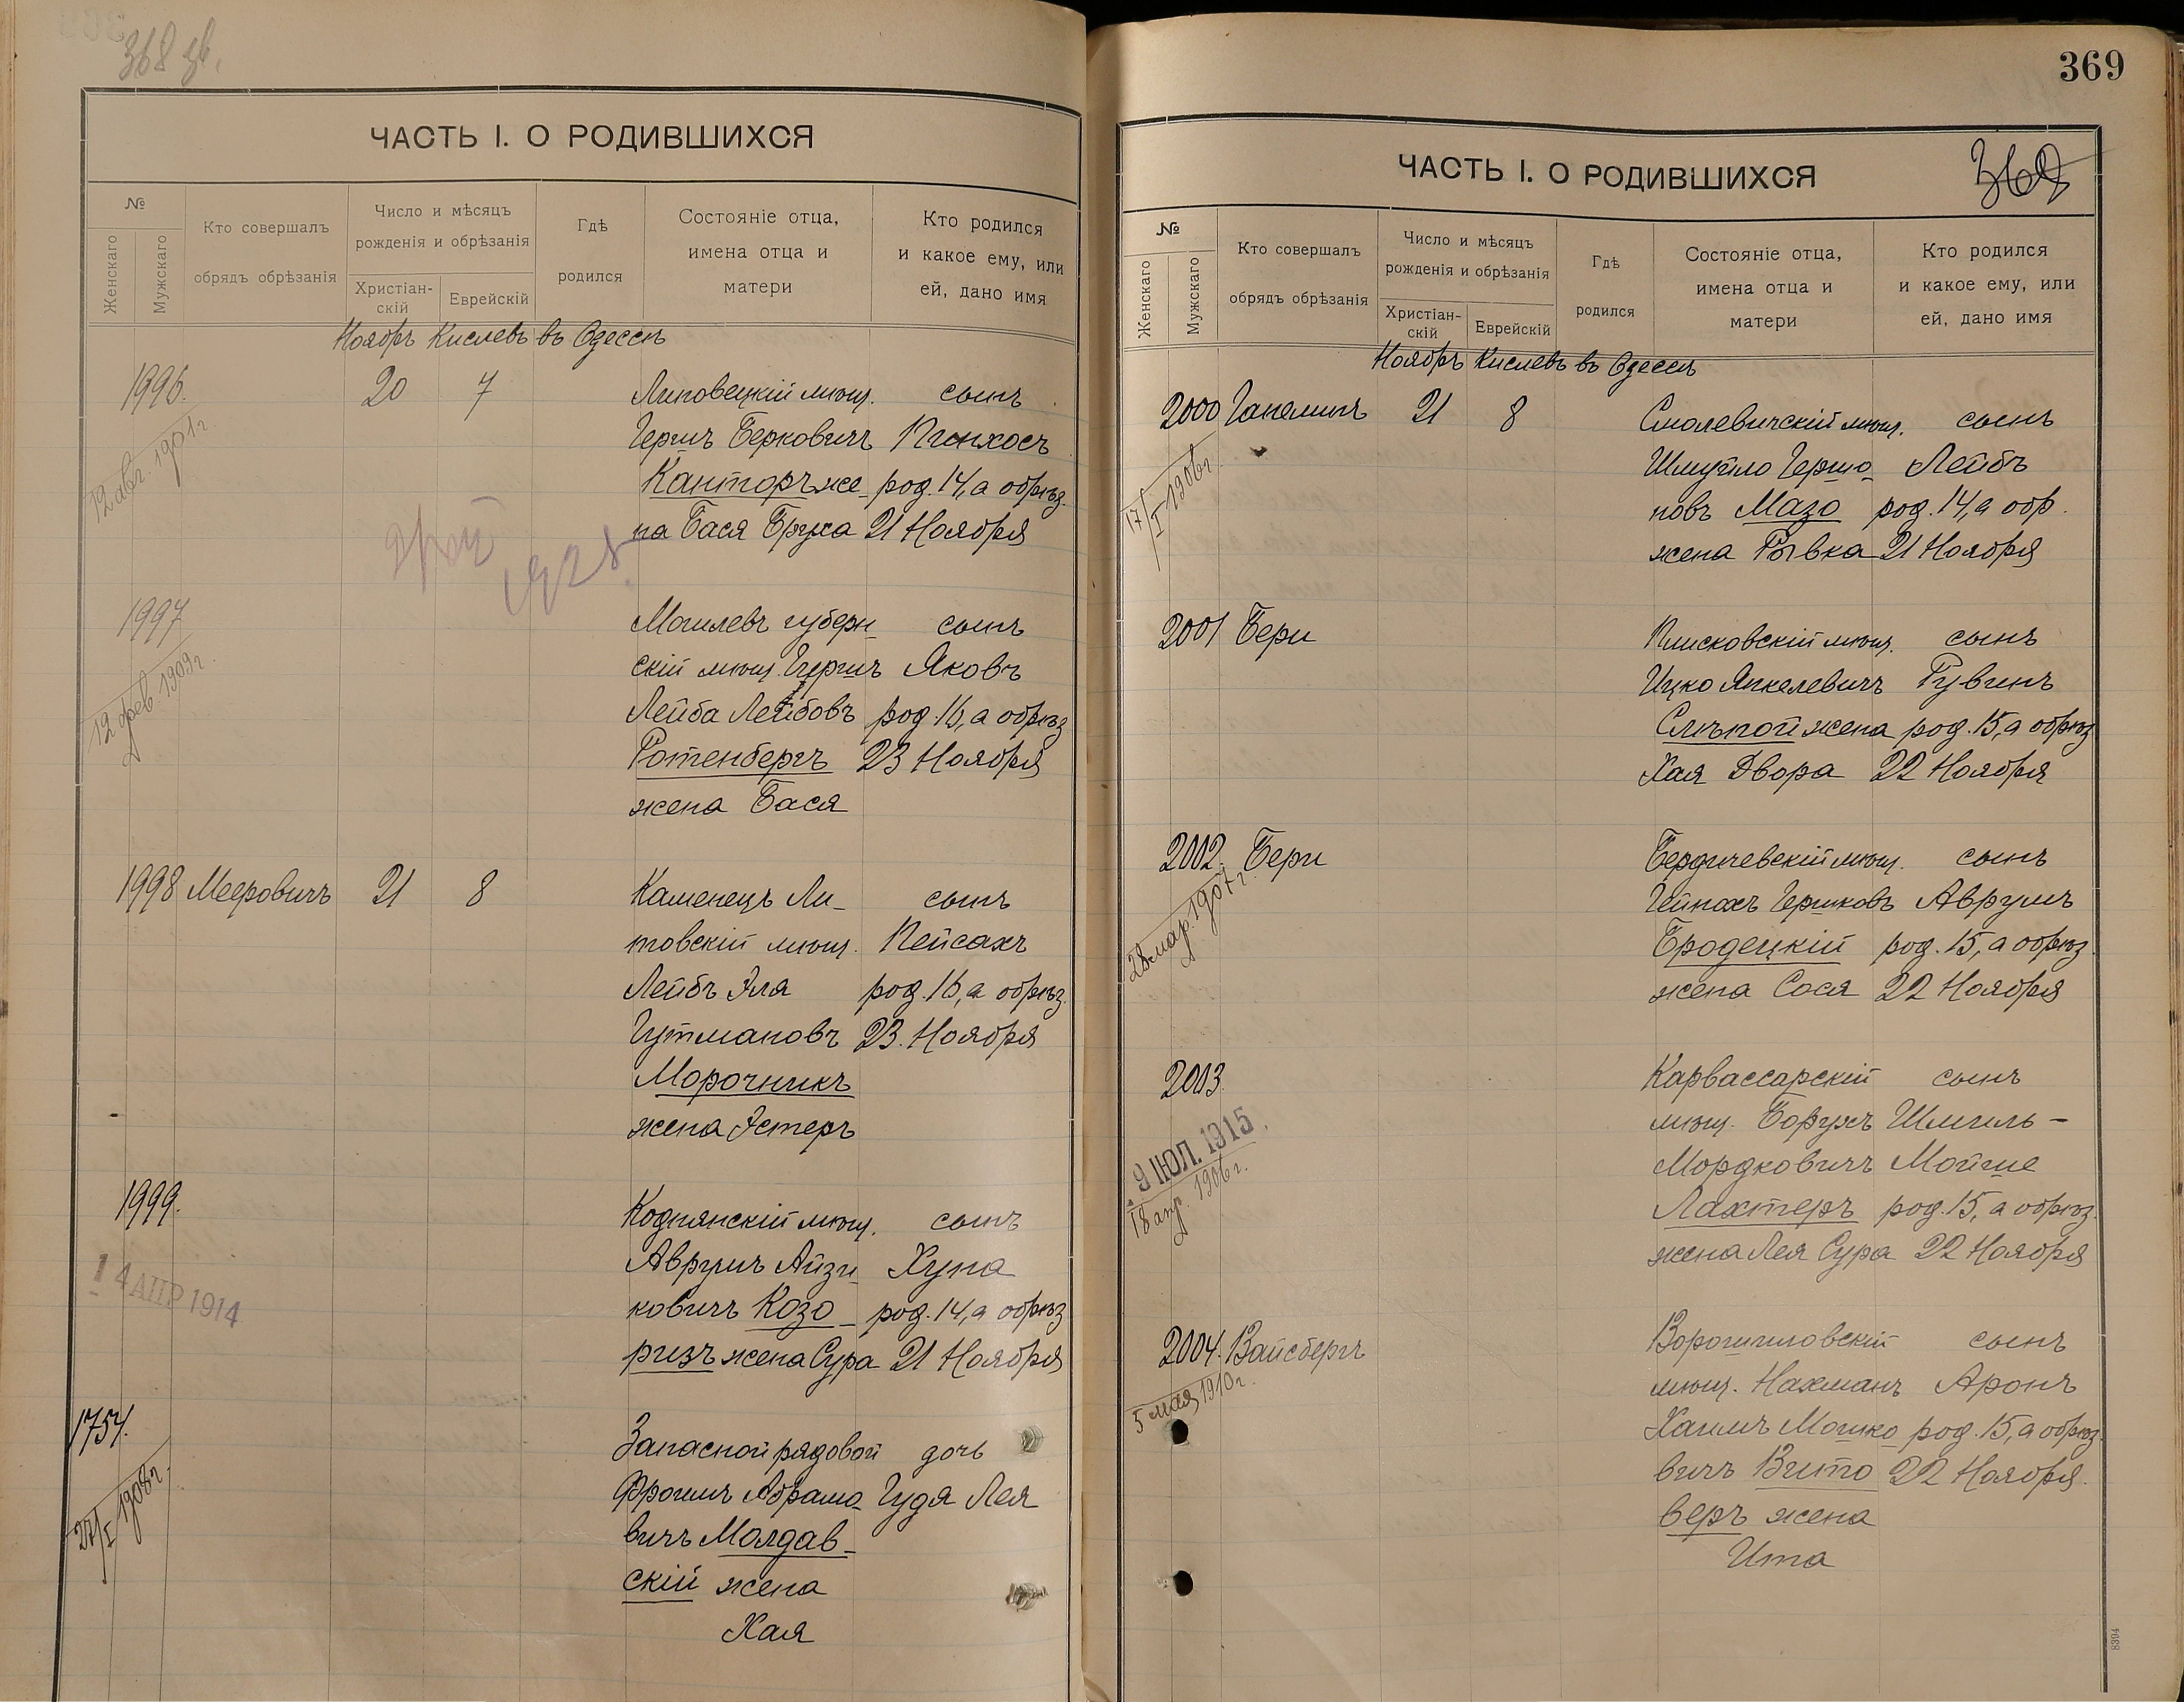 368 зв.
ЧАСТЬ I. О РОДИВШИХСЯ
№
Женскаго
Мужскаго
Кто совершалъ
обрядъ обрѣзанія
Число и мѣсяцъ
рожденія и обрѣзанія
Христіан-
скій
Еврейскій
Гдѣ
родился
Состояніе отца,
имена отца и
матери
Кто родился
и какое ему, или
ей, дано имя
Ноябрь Кислевъ въ Одессѣ
1996. 20 7 Липовецкій мѣщ. сынъ
12 авг. 1901 г.
Гершъ Берковичъ Пинхосъ
Канторъ же- род. 14, а обрѣз.
на Бася Бруха 21 Ноября
1928.
1997 Могилевъ губерн- сынъ
12 фев. 1909 г.
скій мѣщ. Гершъ Яковъ
Лейба Лейбовъ род. 16, а обрѣз
Ротенбергъ 23 Ноября
жена Бася
1998 Мееровичъ 21 8 Каменецъ Ли- сынъ
товскій мѣщ. Пейсахъ
Лейбъ Эля род. 16, а обрѣз.
Гутмановъ 23. Ноября
Морочникъ
жена Эстеръ
1999. Коднянскій мѣщ. сынъ
14 АПР 1914
Аврумъ Айзи- Хуна
ковичъ Козо- род. 14, а обрѣз
ризъ жена Сура 21 Ноября
1754. Запасной рядовой дочь
27/I 1908 г.
Фроимъ Абрамо- Гудя Лея
вичъ Молдав-
скій жена
Хая
369
ЧАСТЬ I. О РОДИВШИХСЯ
369
№
Женскаго
Мужскаго
Кто совершалъ
обрядъ обрѣзанія
Число и мѣсяцъ
рожденія и обрѣзанія
Христіан-
скій
Еврейскій
Гдѣ
родился
Состояніе отца,
имена отца и
матери
Кто родился
и какое ему, или
ей, дано имя
Ноябрь Кислевъ въ Одессѣ
2000 21 8 Смолевичскій мѣщ. сынъ
17/I 1906 г.
Шмуйло Гершо- Лейбъ
новъ Мазо род. 14, а обр.
жена Рывка 21 Ноября
2001 Бери Плисковскій мѣщ. сынъ
Ицко Янкелевичъ Рувинъ
Слѣпой жена род. 15, а обрѣз
Хая Двора 22 Ноября
2002. Бери Бердичевскій мѣщ. сынъ
28 мар. 1907 г.
Гейнахъ Гершковъ Аврумъ
Бродецкій род. 15, а обрѣз.
жена Сося 22 Ноября
2003 Карвассарскій сынъ
9 ІЮЛ. 1915
18 апр. 1906 г.
мѣщ. Борухъ Шмиль-
Мордковичъ Мойше
Лахтеръ род. 15, а обрѣз.
жена Лея Сура 22 Ноября
2004. Вайсбергъ Ворошиловскій сынъ
5 мая 1910 г.
мѣщ. Нахманъ Аронъ
Хаимъ Мошко- род. 15, а обрѣз.
вичъ Вито- 22 Ноября.
веръ жена
Ита
8394